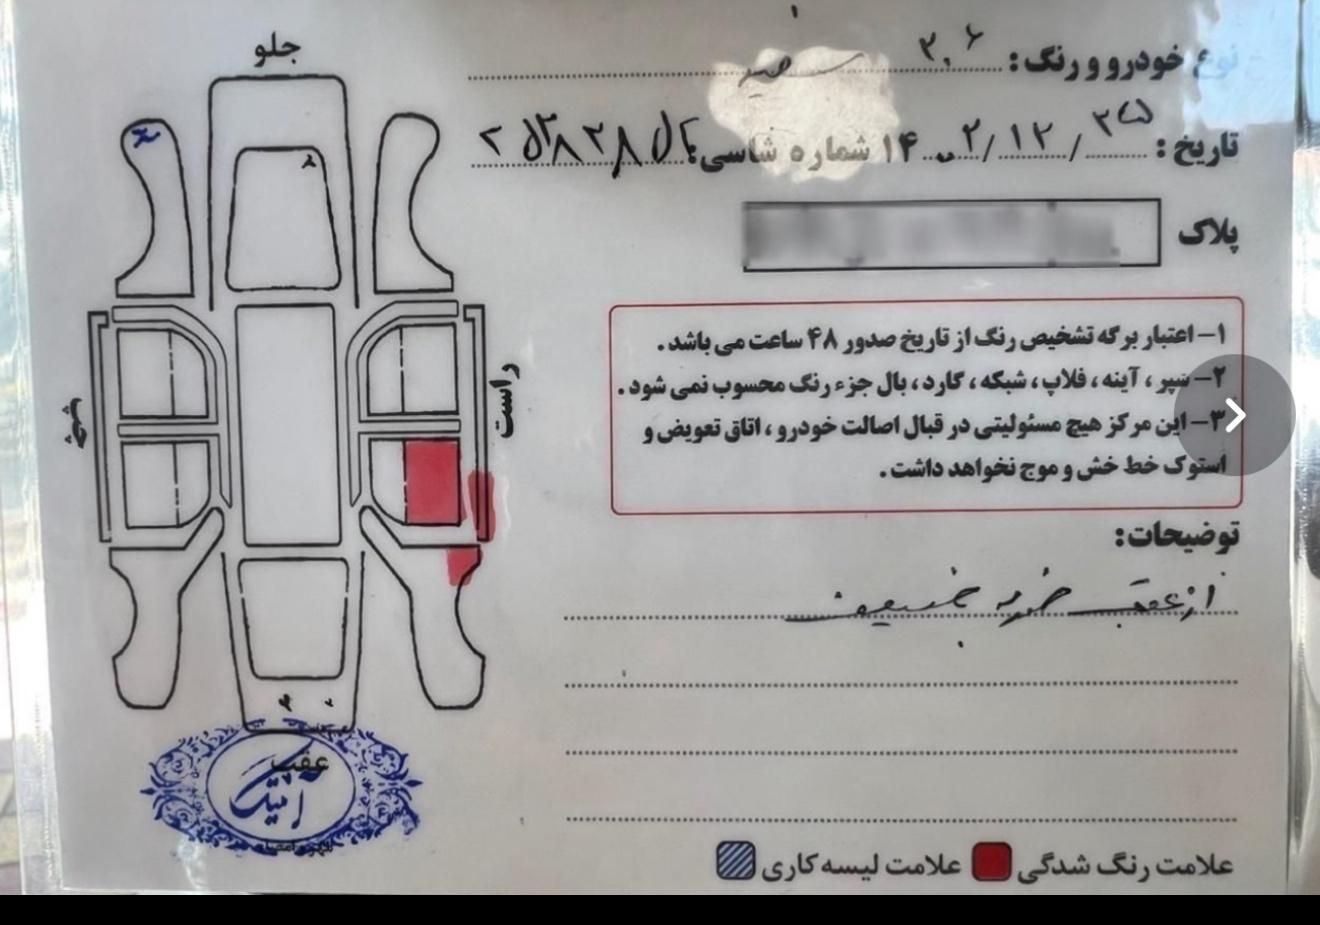 جلو
نوع خودرو و رنگ: ۲۰۶ سفید
تاریخ: ۲۵/۱۲/۱۴۰۲ شماره شاسی:
پلاک
۱- اعتبار برگه تشخیص رنگ از تاریخ صدور ۴۸ ساعت می باشد.
۲- سپر، آینه، فلاپ، شبکه، گارد، بال جزء رنگ محسوب نمی شود.
۳- این مرکز هیچ مسئولیتی در قبال اصالت خودرو، اتاق تعویض و
استوک خط خش و موج نخواهد داشت.
راست
چپ
توضیحات:
از عقب ضربه خفیف
عقب
آپتیک
علامت رنگ شدگی
علامت لیسه کاری